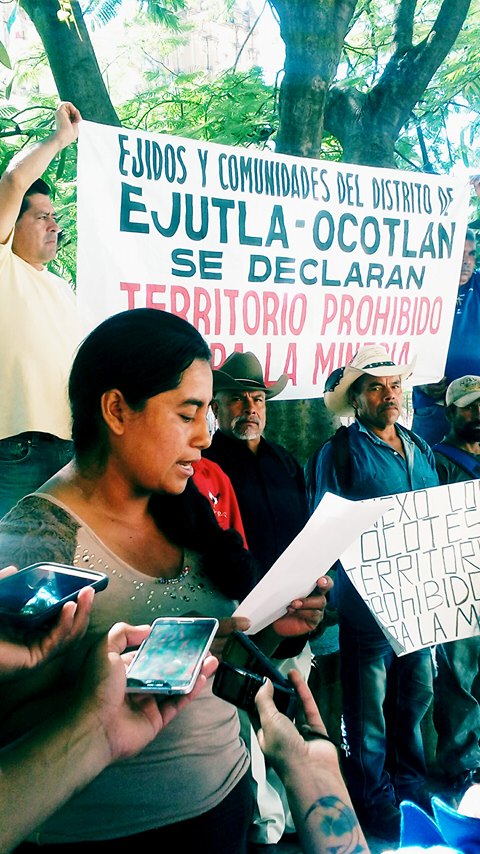 EJIDOS Y COMUNIDADES DEL DISTRITO DE
EJUTLA-OCOTLAN
SE DECLARAN
TERRITORIO PROHIBIDO
LA MINERIA
OCOTE
TERRITOR
LA M